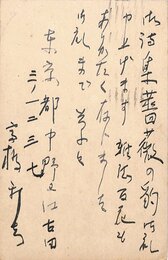 御詩集薔薇の豹御礼
申上げます 雑誌百花も
ありがたく存じます
御礼まで 草々
東京都中野区江古田
三ノ一二三七
高橋新吉